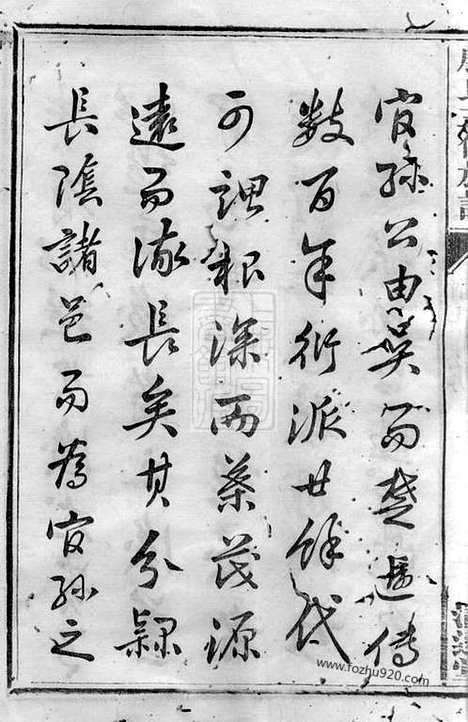 官孫公由吳而楚遞傳
數百年衍派廿餘代
可謂根深而葉茂源
遠而流長矣其分隸
長陰諸邑而為官孫之
www.fozhu920.com